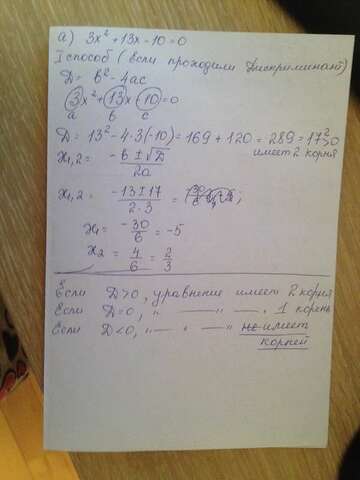 а) 3x² + 13x - 10 = 0
I способ (если проходили Дискриминант)
D = b² - 4ac
3x² + 13x - 10 = 0
a b c
D = 13² - 4·3·(-10) = 169 + 120 = 289 = 17² > 0
имеет 2 корня
x₁,₂ = (-b ± √D)/2a
x₁,₂ = (-13 ± 17)/(2·3) = ;
x₁ = -30/6 = -5
x₂ = 4/6 = 2/3
Если D > 0, уравнение имеет 2 корня
Если D = 0, " —— " —— , 1 корень
Если D < 0, " —— " —— " не имеет
корней